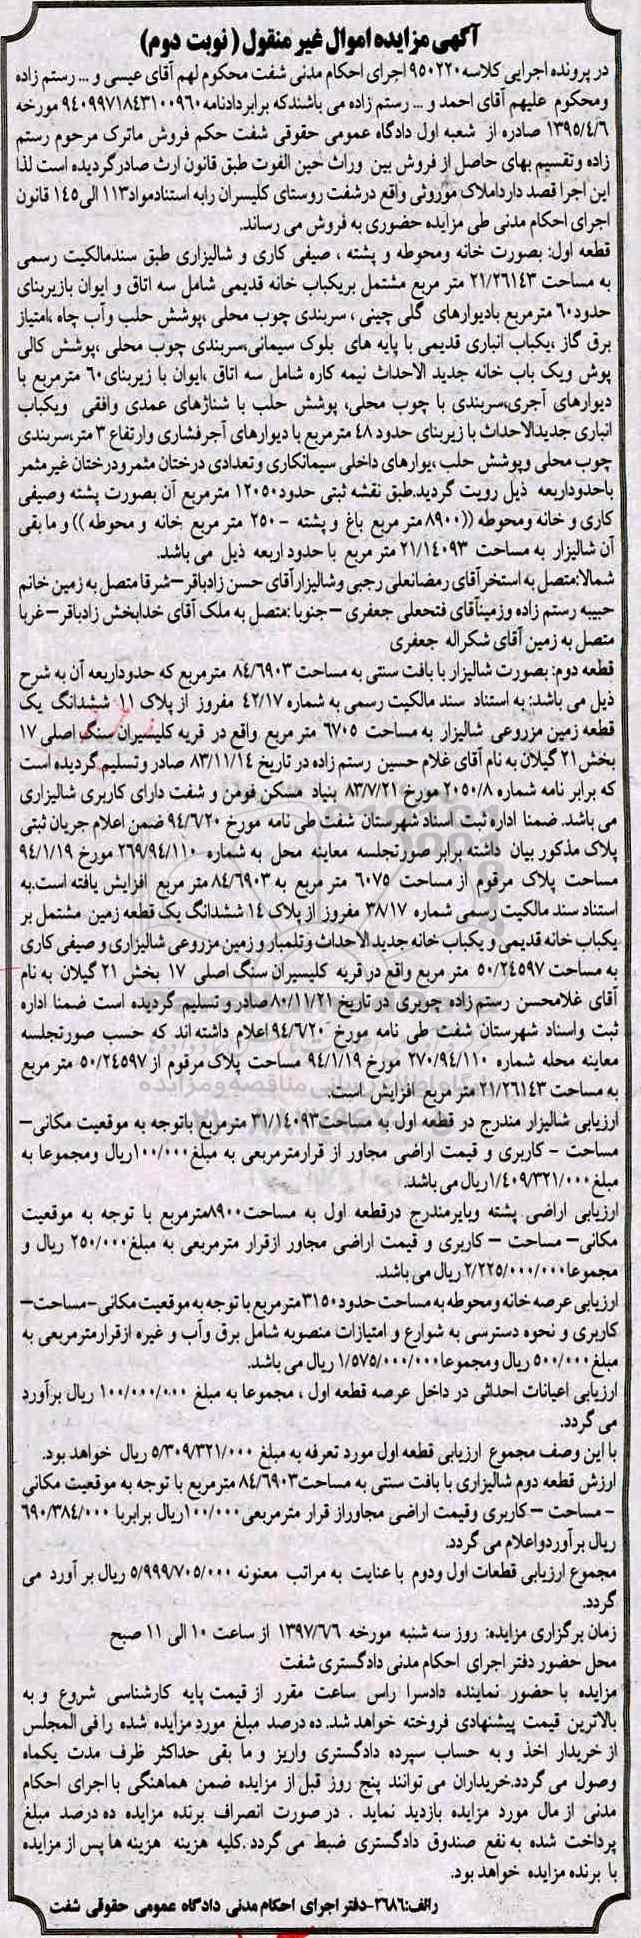 آگهی مزایده اموال غیر منقول ( نوبت دوم)
در پرونده اجرایی کلاسه ۹۵۰۲۲۰ اجرای احکام مدنی شفت محکوم لهم آقای عیسی و ... رستم زاده
ومحکوم علیهم آقای احمد و ... رستم زاده می باشندکه برابردادنامه ۹۴۰۹۹۷۱۸۴۳۱۰۰۹۶۰ مورخه
۱۳۹۵/۴/۶ صادره از شعبه اول دادگاه عمومی حقوقی شفت حکم فروش ماترک مرحوم رستم
زاده وتقسیم بهای حاصل از فروش بین وراث حین الفوت طبق قانون ارث صادرگردیده است لذا
این اجرا قصد دارداملاک موروثی واقع درشفت روستای کلیسران رابه استنادمواد۱۱۳ الی۱۴۵ قانون
اجرای احکام مدنی طی مزایده حضوری به فروش می رساند.
قطعه اول: بصورت خانه ومحوطه و پشته ، صیفی کاری و شالیزاری طبق سندمالکیت رسمی
به مساحت ۲۱/۲۶۱۴۳ متر مربع مشتمل بریکباب خانه قدیمی شامل سه اتاق و ایوان بازیربنای
حدود۶۰ مترمربع بادیوارهای گلی چینی ، سربندی چوب محلی ،پوشش حلب وآب چاه ،امتیاز
برق گاز ،یکباب انباری قدیمی با پایه های بلوک سیمانی،سربندی چوب محلی ،پوشش کالی
پوش ویک باب خانه جدید الاحداث نیمه کاره شامل سه اتاق ،ایوان با زیربنای۶۰ مترمربع با
دیوارهای آجری،سربندی با چوب محلی، پوشش حلب با شناژهای عمدی وافقی ویکباب
انباری جدیدالاحداث با زیربنای حدود ۴۸ مترمربع با دیوارهای آجرفشاری وارتفاع ۳ متر،سربندی
چوب محلی وپوشش حلب ،یوارهای داخلی سیمانکاری وتعدادی درختان مثمرودرختان غیرمثمر
باحدوداربعه ذیل رویت گردید.طبق نقشه ثبتی حدود۱۲۰۵۰ مترمربع آن بصورت پشته وصیفی
کاری و خانه ومحوطه ((۸۹۰۰ متر مربع باغ و پشته - ۲۵۰ متر مربع خانه و محوطه )) و ما بقی
آن شالیزار به مساحت ۲۱/۱۴۰۹۳ متر مربع با حدود اربعه ذیل می باشد.
شمالا:متصل به استخرآقای رمضانعلی رجبی وشالیزارآقای حسن زادباقر-شرقا متصل به زمین خانم
حبیبه رستم زاده وزمینآقای فتحعلی جعفری - جنوبا :متصل به ملک آقای خدابخش زادباقر-غربا
متصل به زمین آقای شکراله جعفری
قطعه دوم: بصورت شالیزار با بافت سنتی به مساحت ۸۴/۶۹۰۳ مترمربع که حدوداربعه آن به شرح
ذیل می باشد: به استناد سند مالکیت رسمی به شماره ۴۲/۱۷ مفروز از پلاک ۱۱ ششدانگ یک
قطعه زمین مزروعی شالیزار به مساحت ۶۷۰۵ متر مربع واقع در قریه کلیسیران سنگ اصلی ۱۷
بخش ۲۱ گیلان به نام آقای غلام حسین رستم زاده در تاریخ ۸۳/۱۱/۱۴ صادر وتسلیم گردیده است
که برابر نامه شماره ۲۰۵۰/۸ مورخ ۸۳/۷/۲۱ بنیاد مسکن فومن و شفت دارای کاربری شالیزاری
می باشد. ضمنا اداره ثبت اسناد شهرستان شفت طی نامه مورخ ۹۴/۶/۲۰ ضمن اعلام جریان ثبتی
پلاک مذکور بیان داشته برابر صورتجلسه معاینه محل به شماره ۲۶۹/۹۴/۱۱۰ مورخ ۹۴/۱/۱۹
مساحت پلاک مرقوم از مساحت ۶۰۷۵ متر مربع به ۸۴/۶۹۰۳ متر مربع افزایش یافته است.به
استناد سند مالکیت رسمی شماره ۳۸/۱۷ مفروز از پلاک ۱۴ ششدانگ یک قطعه زمین مشتمل بر
یکباب خانه قدیمی و یکباب خانه جدید الاحداث وتلمبار و زمین مزروعی شالیزاری و صیفی کاری
به مساحت ۵۰/۲۴۵۹۷ متر مربع واقع در قریه کلیسیران سنگ اصلی ۱۷ بخش ۲۱ گیلان به نام
آقای غلامحسن رستم زاده چوبری در تاریخ ۸۰/۱۱/۲۱ صادر و تسلیم گردیده است ضمنا اداره
ثبت واسناد شهرستان شفت طی نامه مورخ ۹۴/۶/۲۰ اعلام داشته اند که حسب صورتجلسه
معاینه محله شماره ۲۷۰/۹۴/۱۱۰ مورخ ۹۴/۱/۱۹ مساحت پلاک مرقوم از ۵۰/۲۴۵۹۷ متر مربع
به مساحت ۲۱/۲۶۱۴۳ متر مربع افزایش است.
ارزیابی شالیزار مندرج در قطعه اول به مساحت۳۱/۱۴۰۹۳ مترمربع باتوجه به موقعیت مکانی-
مساحت - کاربری و قیمت اراضی مجاور از قرارمترمربعی به مبلغ۱۰۰/۰۰۰ریال ومجموعا به
مبلغ۱/۴۰۹/۳۲۱/۰۰۰ریال می باشد.
ارزیابی اراضی پشته وبایرمندرج درقطعه اول به مساحت۸۹۰۰مترمربع با توجه به موقعیت
مکانی- مساحت - کاربری و قیمت اراضی مجاور ازقرار مترمربعی به مبلغ۲۵۰/۰۰۰ ریال و
مجموعا۲/۲۲۵/۰۰۰/۰۰۰ ریال می باشد.
ارزیابی عرصه خانه ومحوطه به مساحت حدود۳۱۵۰مترمربع با توجه به موقعیت مکانی-مساحت-
کاربری و نحوه دسترسی به شوارع و امتیازات منصوبه شامل برق وآب و غیره ازقرارمترمربعی به
مبلغ۵۰۰/۰۰۰ ریال ومجموعا۱/۵۷۵/۰۰۰/۰۰۰ ریال می باشد.
ارزیابی اعیانات احداثی در داخل عرصه قطعه اول ، مجموعا به مبلغ ۱۰۰/۰۰۰/۰۰۰ ریال برآورد
می گردد.
با این وصف مجموع ارزیابی قطعه اول مورد تعرفه به مبلغ ۵/۳۰۹/۳۲۱/۰۰۰ ریال خواهد بود.
ارزش قطعه دوم شالیزاری با بافت سنتی به مساحت۸۴/۶۹۰۳ مترمربع با توجه به موقعیت مکانی
- مساحت - کاربری وقیمت اراضی مجاوراز قرار مترمربعی۱۰۰/۰۰۰ریال برابربا ۶۹۰/۳۸۴/۰۰۰
ریال برآوردواعلام می گردد.
مجموع ارزیابی قطعات اول ودوم با عنایت به مراتب معنونه ۵/۹۹۹/۷۰۵/۰۰۰ ریال بر آورد می
گردد.
زمان برگزاری مزایده: روز سه شنبه مورخه ۱۳۹۷/۶/۶ از ساعت ۱۰ الی ۱۱ صبح
محل حضور دفتر اجرای احکام مدنی دادگستری شفت
مزایده با حضور نماینده دادسرا راس ساعت مقرر از قیمت پایه کارشناسی شروع و به
بالاترین قیمت پیشنهادی فروخته خواهد شد. ده درصد مبلغ مورد مزایده شده را فی المجلس
از خریدار اخذ و به حساب سپرده دادگستری واریز و ما بقی حداکثر ظرف مدت یکماه
وصول می گردد.خریداران می توانند پنج روز قبل از مزایده ضمن هماهنگی با اجرای احکام
مدنی از مال مورد مزایده بازدید نماید . در صورت انصراف برنده مزایده ده درصد مبلغ
پرداخت شده به نفع صندوق دادگستری ضبط می گردد .کلیه هزینه هزینه ها پس از مزایده
با برنده مزایده خواهد بود.
رالف:۳۶۸۶-دفتر اجرای احکام مدنی دادگاه عمومی حقوقی شفت